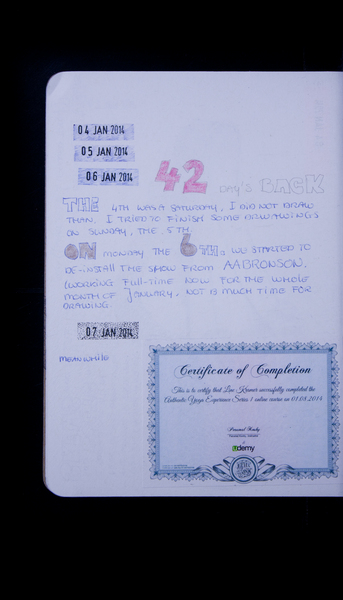 04 JAN 2014
05 JAN 2014
06 JAN 2014
42 DAY'S BACK
THE 4TH WAS A SATURDAY, I DID NOT DRAW
THAN. I TRIED TO FINISH SOME DRWAWINGS
ON SUNDAY, THE 5TH.
ON MONDAY THE 6TH, WE STARTED TO
DE-INSTALL THE SHOW FROM AABRONSON.
(WORKING FULL-TIME NOW FOR THE WHOLE
MONTH OF JANUARY, NOT IS MUCH TIME FOR
DRAWING
07 JAN 2014
MEANWHILE
Certificate of Completion
This is to certify that Line Kramer successfully completed the
Authentic Yoga Experience Series 1 online course on 01.08.2014
udemy